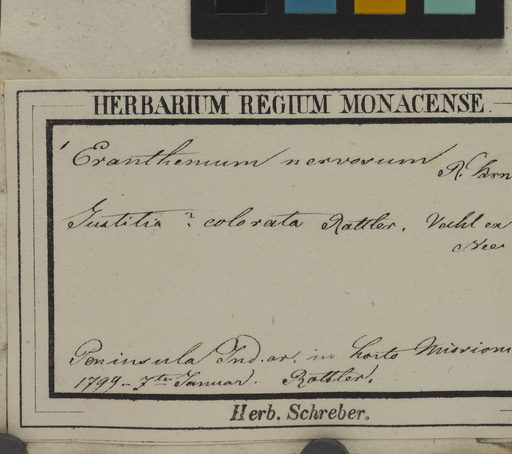 HERBARIUM REGIUM MONACENSE
Eranthemum nervosum
R. Brn
Justitia ? colorata Rottler. Vahl ex
Nees
Peninsula Ind. or. in horto Mission
1799. 7te Januar. Rottler.
Herb. Schreber.